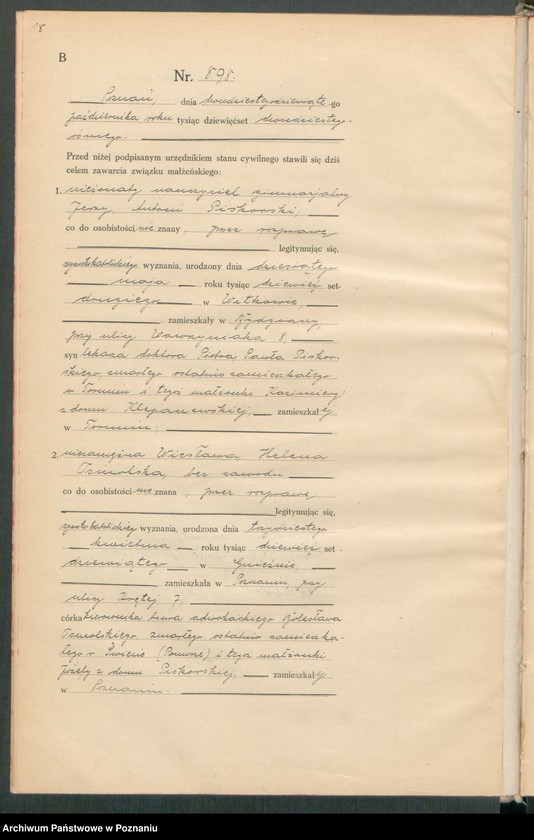 18
B
Nr. 898.
Poznań, dnia dwudziestegodziewiąte-go
października roku tysiąc dziewięćset dwudziestego-
ósmego.
Przed niżej podpisanym urzędnikiem stanu cywilnego stawili się dziś
celem zawarcia związku małżeńskiego:
1. nieżonaty nauczyciel gimnazjalny
Jerzy, Antoni Piskorski,
co do osobistości nie znany, przez rozprawę
legitymując się,
rzymskokatolickiego wyznania, urodzony dnia dziesiątego
maja roku tysiąc dziewięć set-
drugiego w Witkowie,
zamieszkały w Bydgoszczy
przy ulicy Wawrzyniaka 8,
syn lekarza doktora Piotra, Pawła Piskor-
skiego, zmarłego ostatnio zamieszkałego
w Toruniu i tegoż małżonki Kazimiery
z domu zamieszkałej
w Toruniu;
2. niezamężna Wiesława, Helena
Tomolska, bez zawodu,
co do osobistości nie znana, przez rozprawę
legitymując się,
rzymskokatolickiego wyznania, urodzona dnia trzydziestego
kwietnia roku tysiąc dziewięć set-
dziewiątego w Gnieźnie,
zamieszkała w Poznaniu, przy
ulicy Krętej 7,
córka kierownika biura adwokackiego Bolesława
Tomolskiego, zmarłego ostatnio zamieszka-
łego w Świeciu (Pomorze) i tegoż małżonki
Józefy z domu Piskorskiej, zamieszkałej
w Poznaniu.
Archiwum Państwowe w Poznaniu